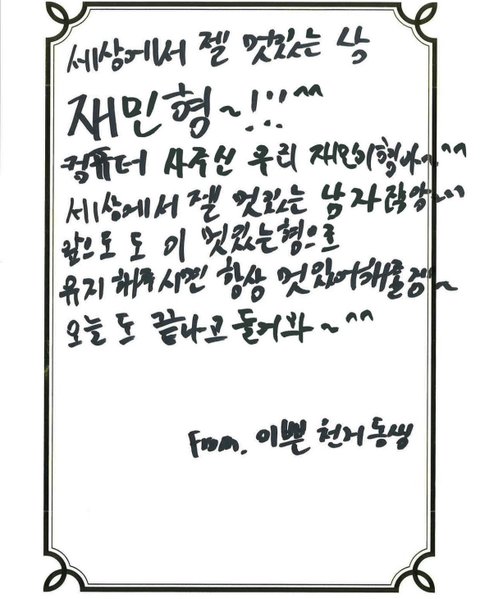 세상에서 젤 멋있는 남
재민형~!!!^^
컴퓨터 사주신 우리 재민이형아~^^
세상에서 젤 멋있는 남자
앞으로도 이 멋있는형으로
유지 해주시면 항상 멋있어해줄겜~
오늘도 끝나고 둘거봐~^^
From. 이쁜 천거동생